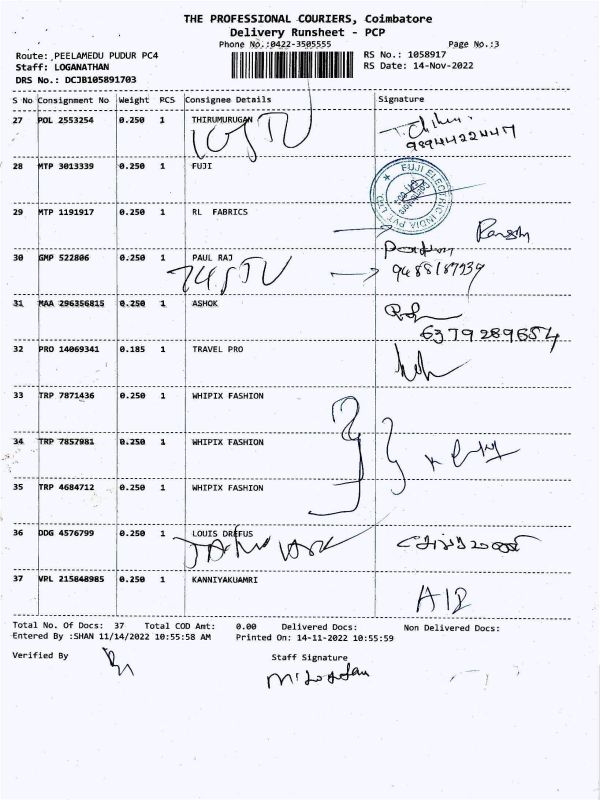 THE PROFESSIONAL COURIERS, Coimbatore
Delivery Runsheet - PCP
Phone No.:0422-3505555 Page No.:3
Route: PEELAMEDU PUDUR PC4 RS No.: 1058917
Staff: LOGANATHAN RS Date: 14-Nov-2022
DRS No.: DCJB105891703
S No Consignment No Weight PCS Consignee Details Signature
27 POL 2553254 0.250 1 THIRUMURUGAN
9894422447
28 MTP 3013339 0.250 1 FUJI
FUJI ELECTRIC INDIA PVT. LTD
29 MTP 1191917 0.250 1 RL FABRICS
30 GMP 522806 0.250 1 PAUL RAJ
31 MAA 296356815 0.250 1 ASHOK
6379289654
32 PRO 14069341 0.185 1 TRAVEL PRO
33 TRP 7871436 0.250 1 WHIPIX FASHION
34 TRP 7857981 0.250 1 WHIPIX FASHION
35 TRP 4684712 0.250 1 WHIPIX FASHION
36 DDG 4576799 0.250 1 LOUIS DREFUS
37 VPL 215848985 0.250 1 KANNIYAKUAMRI
Total No. Of Docs: 37 Total COD Amt: 0.00 Delivered Docs: Non Delivered Docs:
Entered By :SHAN 11/14/2022 10:55:58 AM Printed On: 14-11-2022 10:55:59
Verified By Staff Signature